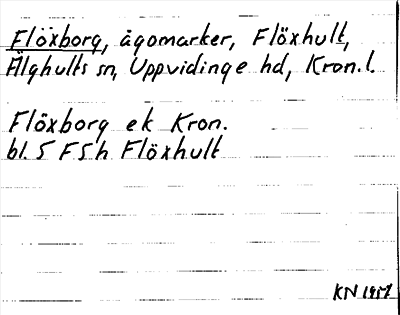 Flöxborg, ägomarker, Flöxhult,
Älghults sn, Uppvidinge hd, Kron.l.
Flöxborg ek Kron.
bl. 5 F 5 h Flöxhult
KN